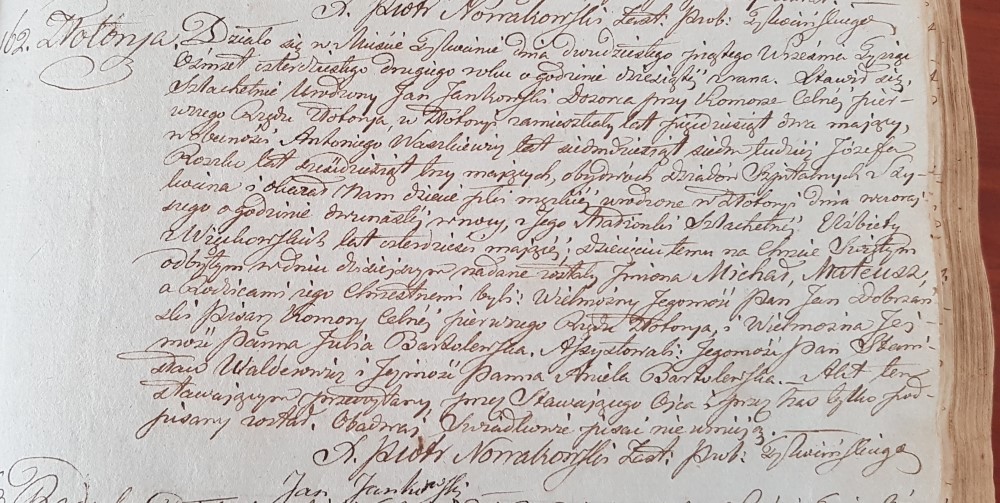 X. Piotr Nowakowski Zast: Prob:
162. Złotorja. Działo się w Mieście dnia dwudziestego piątego Września Tysiąc
Ośmset czterdziestego drugiego roku o godzinie dziesiątej zrana. Stawił się,
Szlachetnie Urodzony Jan Jankowski Dozorca przy Komorze Celnéj pier-
wszego Rzędu Złotorja, w Złotoryi zamieszkały lat pięćdziesiąt dwa mający,
w obecności Antoniego lat siedmdziesiąt siedm tudzież Józefa
lat sześćdziesiąt trzy mających, obydwóch Dziadów Szpitalnych z Ty-
kocina i okazał Nam dziecie płci męzkiéj urodzone w Złotoryi dnia wczoraj-
szego o godzinie dwunastéj w nocy, z Jego Małżonki Szlachetnéj Elżbiety
z Więckowskich lat czterdzieści mającéj; Dziecięciu temu na Chrzcie Świętym
odbytym w dniu dzisiejszym nadane zostały Imiona Michał, Mateusz,
a Rodzicami jego Chrzestnemi byli: Wielmożny Jegomość Pan Jan Dobrzań-
ski Pisarz Komory Celnéj pierwszego Rzędu Złotorja, i Wielmożna Jej-
mość Panna Julia Bartolewska, Assystowali: Jegomość Pan Stani-
sław i Jejmość Panna Aniela Bartolewska. – Akt ten
stawającym przeczytany przez Stawającego Ojca i przez Nas tylko pod-
pisany został. Obadwaj Świadkowie pisać nie umieją.
X. Piotr Nowakowski Zast: Prob:
Jan Jankowski